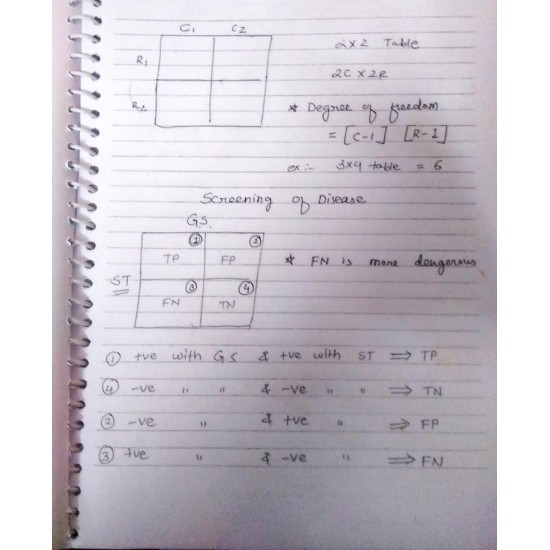 C1 C2
R1
2x2 Table
2C x 2R
R2
* Degree of freedom
= [C-1] [R-1]
ex:- 3x4 table = 6
Screening of Disease
G.S.
① ②
TP FP
* FN is more dangerous
ST
③ ④
FN TN
① +ve with GS & +ve with ST ⇒ TP
④ -ve " " & -ve " " ⇒ TN
② -ve " & +ve " ⇒ FP
③ +ve " & -ve " ⇒ FN